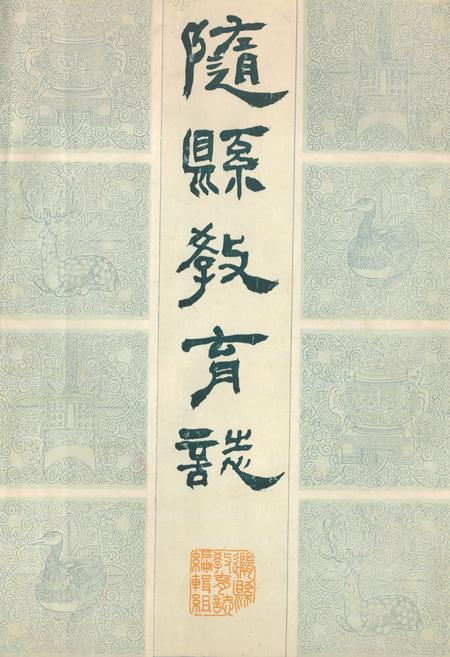 隨縣教育誌
隨縣
教育誌
編輯組